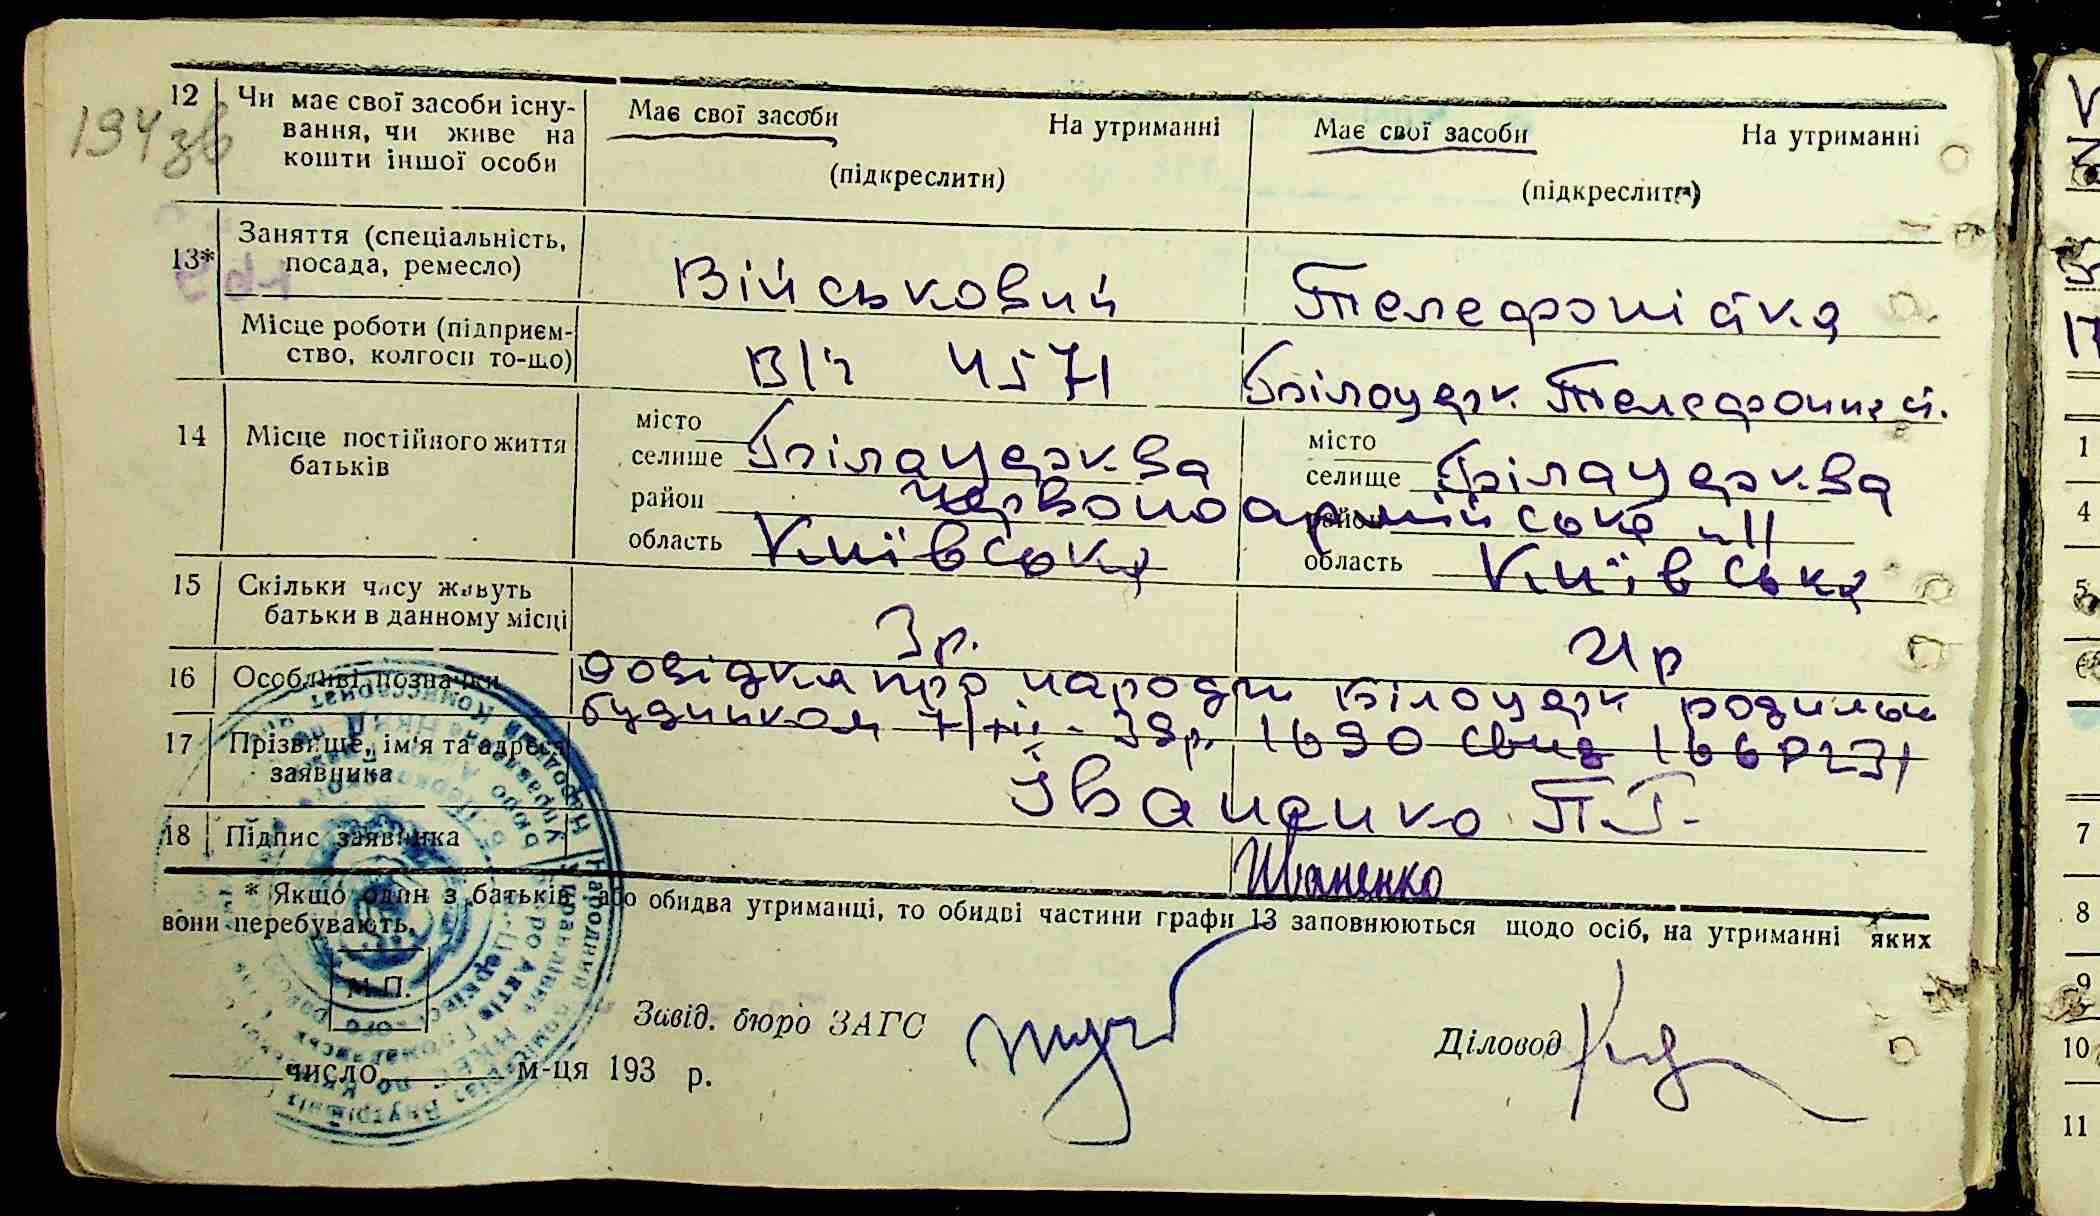 194 зв
12 Чи має свої засоби існу- Має свої засоби На утриманні Має свої засоби На утриманні
вання, чи живе на
кошти іншої особи (підкреслити) (підкреслити)
13* Заняття (спеціальність,
посада, ремесло) Військовий Телефоністка
Місце роботи (підприєм-
ство, колгосп то-що) В/ч 4571 Білоцерк. Телефонн. ст.
14 Місце постійного життя місто місто
батьків селище Білацерква селище Білацерква
район Червоноармійська 11 район
область Київська область Київська
15 Скільки часу живуть
батьки в данному місці 3 р. 21 р
16 Особливі позначки Довідка про народж Білоцерк родильн
будинком 7/XII - 39р. 1690
17 Прізвище, ім'я та адреса
заявника Іваненко П.Г.
18 Підпис заявника Иваненко
* Якщо один з батьків або обидва утриманці, то обидві частини графи 13 заповнюються щодо осіб, на утриманні яких
вони перебувають.
М.П.
Завід. бюро ЗАГС Діловод
число м-ця 193 р.
1
4
5
7
8
9
10
11